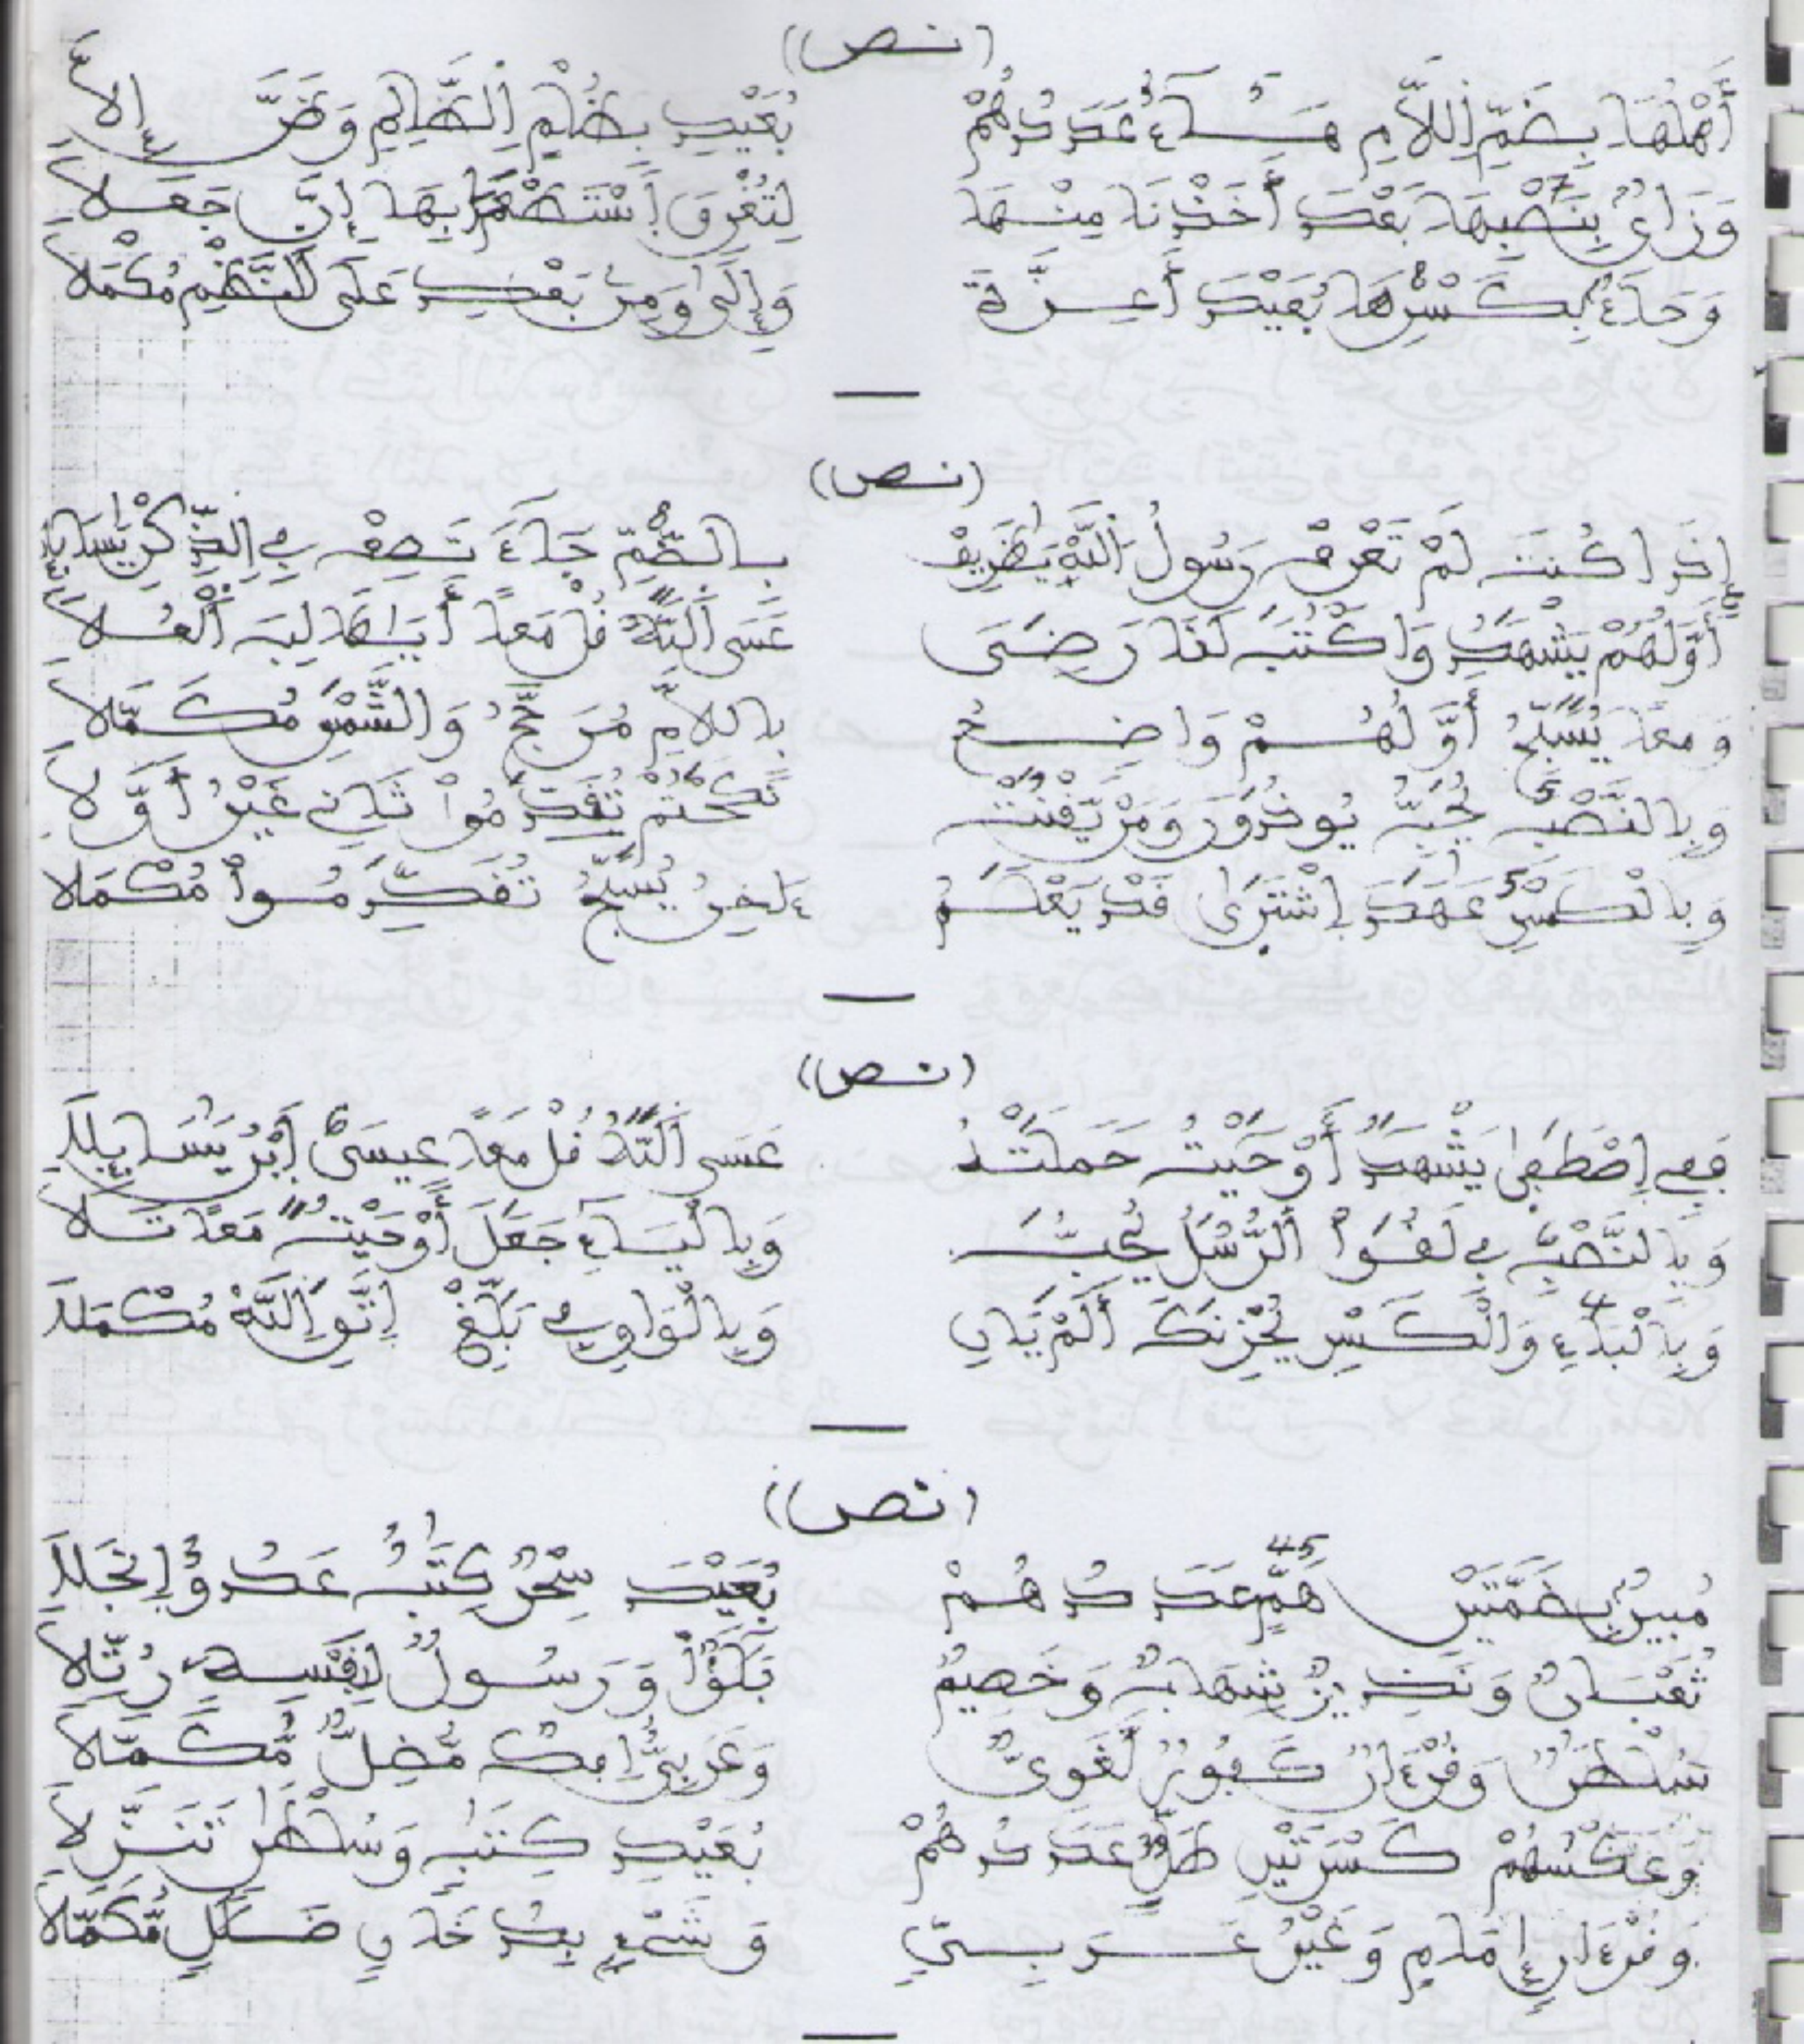 (نص)
أَهْلُهَا بِضَمِّ اللَّامِ هَـــآءُ عَدَدُهُمْ بُعَيْدِ بِظُلْمٍ اِلظَّالِمِ وَضَرَّ إِلَّا
وَزَايٌ بِنَصْبِهَا 7 بَعْدَ أَخَذْنَا مِنْهَا لِتُغْرِقَ اَسْتَطْعَمَا بِهَا إِنَّ جَعَلَا
وَحَآءٌ بِكَسْرِهَا 8 بُعَيْدَ أَعِزَّةَ وَإِلَىٰ وَمِن بَعْضِ عَلَى النَّظْمِ مُكْمَلَا
(نص)
إِذَا كُنتَ لَمْ تَعْرِفْ رَسُولُ اللَّهِ يَظَرِيفْ بِالضَّمِّ 8 جَآءَ تَصِفْ فِي اِلذِّكْرِ يَسَايِلَا
أَوَّلُهُمْ يَشْهَدُ وَاكْتُبْ لَنَا رَضَى عَسَى اَللَّهُ قُلْ مَعاً أَيَا طَالِبَ الْعُلَا
وَمَعاً يُسَبِّحُ أَوَّلُهُمْ وَاضِحُ بِاللَّامِ مُرَبَّحُ وَالشَّمْسِ مُكَمَّلَا
وَبِالنَّصْبِ 5 يُحِبُّ يُوذُونَ وَمَنْ يَّقْنُتْ نَكَحْتُمْ تُقَدِّمُواْ ثَانِي غَيْرُ أَوَّلَا
وَبِالْكَسْرِ 5 عَهَدَ اِشْتَرَىٰ قَدْ يَعْلَمُ ءَاخِرُ يُسَبِّحُ تُقَدِّمُواْ مُكْمَلَا
(نص)
فَفِي اِصْطَفَىٰ يَشْهَدُ أَوْحَيْتُ حَمَلَتْهُ عَسَى اَللَّهُ قُلْ مَعاً عِيسَى 6 اَبْنُ يَسَايِلَا
وَبِالنَّصْبِ فِي لَقُواْ اَلرُّسُلُ يُحِبُّ وَبِالْيَـآءِ جَعَلَ أَوْحَيْتُ مَعاً تَلَا
وَبِالْبَآءِ وَالْكَسْرِ 4 يُحْزِنكَ أَلَمْ يَانِ وَبِالْوَاوِ فِي بَلِّغْ اِتَّقِ اِللَّهَ مُكْمَلَا
(نص)
مُبِينٌ بِضَمَّتَيْنِ هَمٍّ 45 عَدَدُهُمْ بُعَيْدَ سِحْرٌ كِتَٰبٌ عَدُوٌّ اِنْجَلَا
ثُعْبَانٌ وَنَذِيرٌ شِهَابٌ وَخَصِيمٌ بَلَٰٓؤٌاْ وَرَسُولٌ لِنَفْسِهِ رُتِّلَا
سُلْطَٰنٌ وَقُرْءَانٌ كَفُورٌ لَّقَوِيٌّ وَعَرَبِيٌّ اِفْكٌ مُّضِلٌّ مُّكَمَّلَا
وَعَكْسُهُمْ كَسْرَتَيْنِ طَلٍّ 39 عَدَدُهُمْ بُعَيْدِ كِتَٰبٍ وَسُلْطَٰنٍ تَنَزَّلَا
وَقُرْءَانٍ إِمَامٍ وَغَيْرُ عَــرَبِـيٍّ وَشَيْءٍ بِدُخَانٍ ضَلَٰلٍ مُّكَمَّلَا